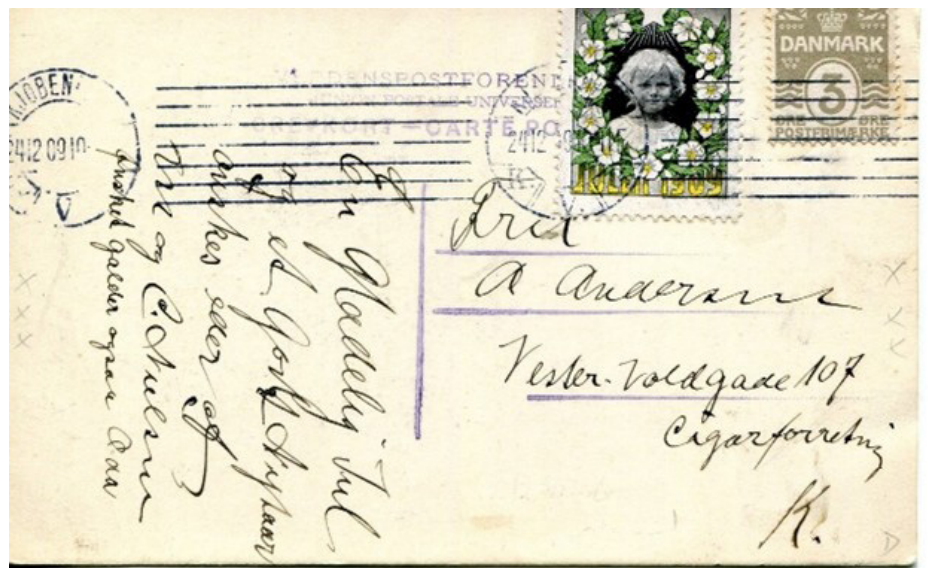 KJØBEN
24.12.09 10
VERDENSPOSTFORENIN
UNION POSTALE UNIVERSEL
BREFKORT — CARTE PO
24.12
K.
JULEN 1909
DANMARK
3
ØRE ØRE
POSTFRIMÆRKE
En Glædelig Jul
og et Godt Nytaar
ønskes eder af
og C. Nielsen
Ønsket gælder ogsaa
A Andersen
Vester-Voldgade 107
Cigarforretnig
K.
D